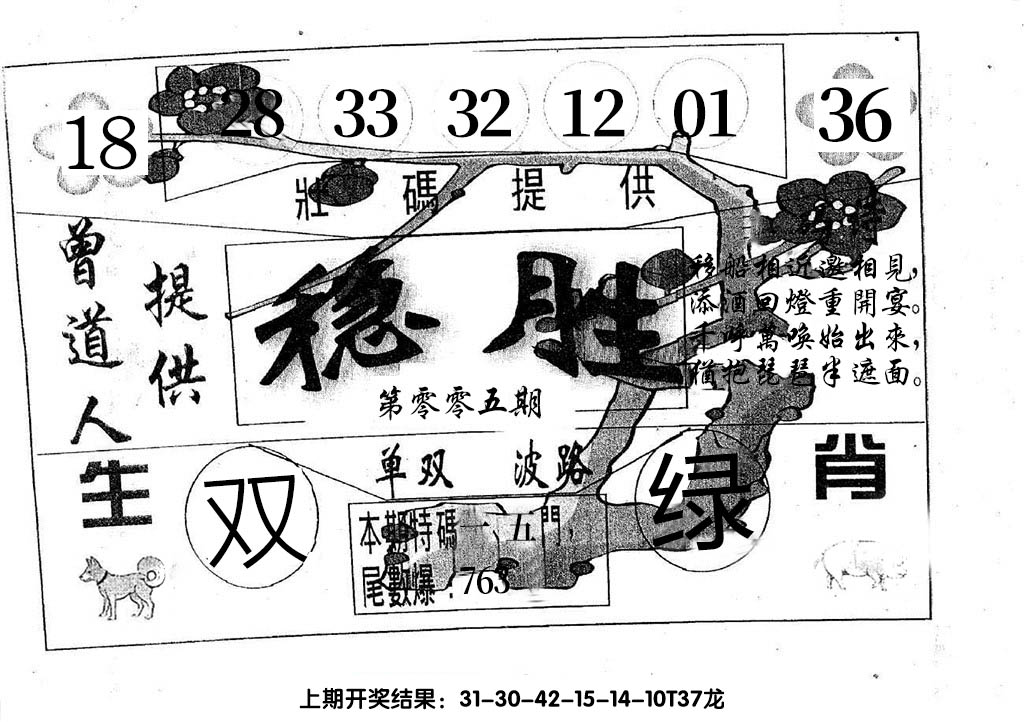 18 28 33 32 12 01 36
壯碼提供
特
曾道人
提供
稳胜
第零零五期
移船相近邀相見，
添酒回燈重開宴。
千呼萬喚始出來，
猶抱琵琶半遮面。
单双 波路
生肖
双
绿
本期特碼一、五門，
尾數爆：763
上期开奖结果：31-30-42-15-14-10T37龙